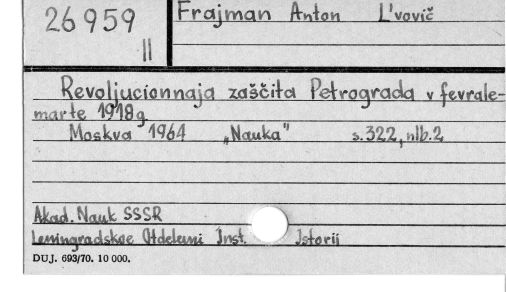 26959
II
Frajman Anton L'vovič
Revoljucionnaja zaščita Petrograda v fevrale-
marte 1918g
Moskva 1964 „Nauka" s.322, nlb.2
Akad. Nauk SSSR
Leningradskoe Otdeleni Inst. Istorii
DUJ. 693/70. 10 000.